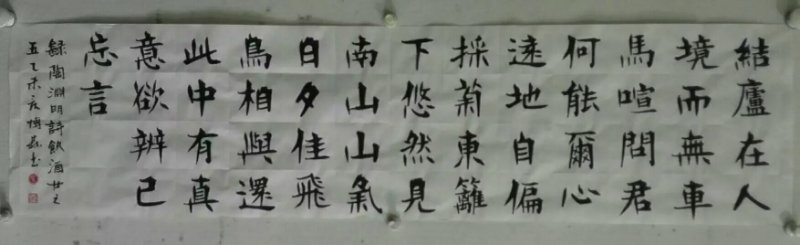 結廬在人
境而無車
馬喧問君
何能爾心
遠地自偏
採菊東籬
下悠然見
南山山氣
日夕佳飛
鳥相與還
此中有真
意欲辨已
忘言
録陶淵明詩飲酒廿之
五乙未夏